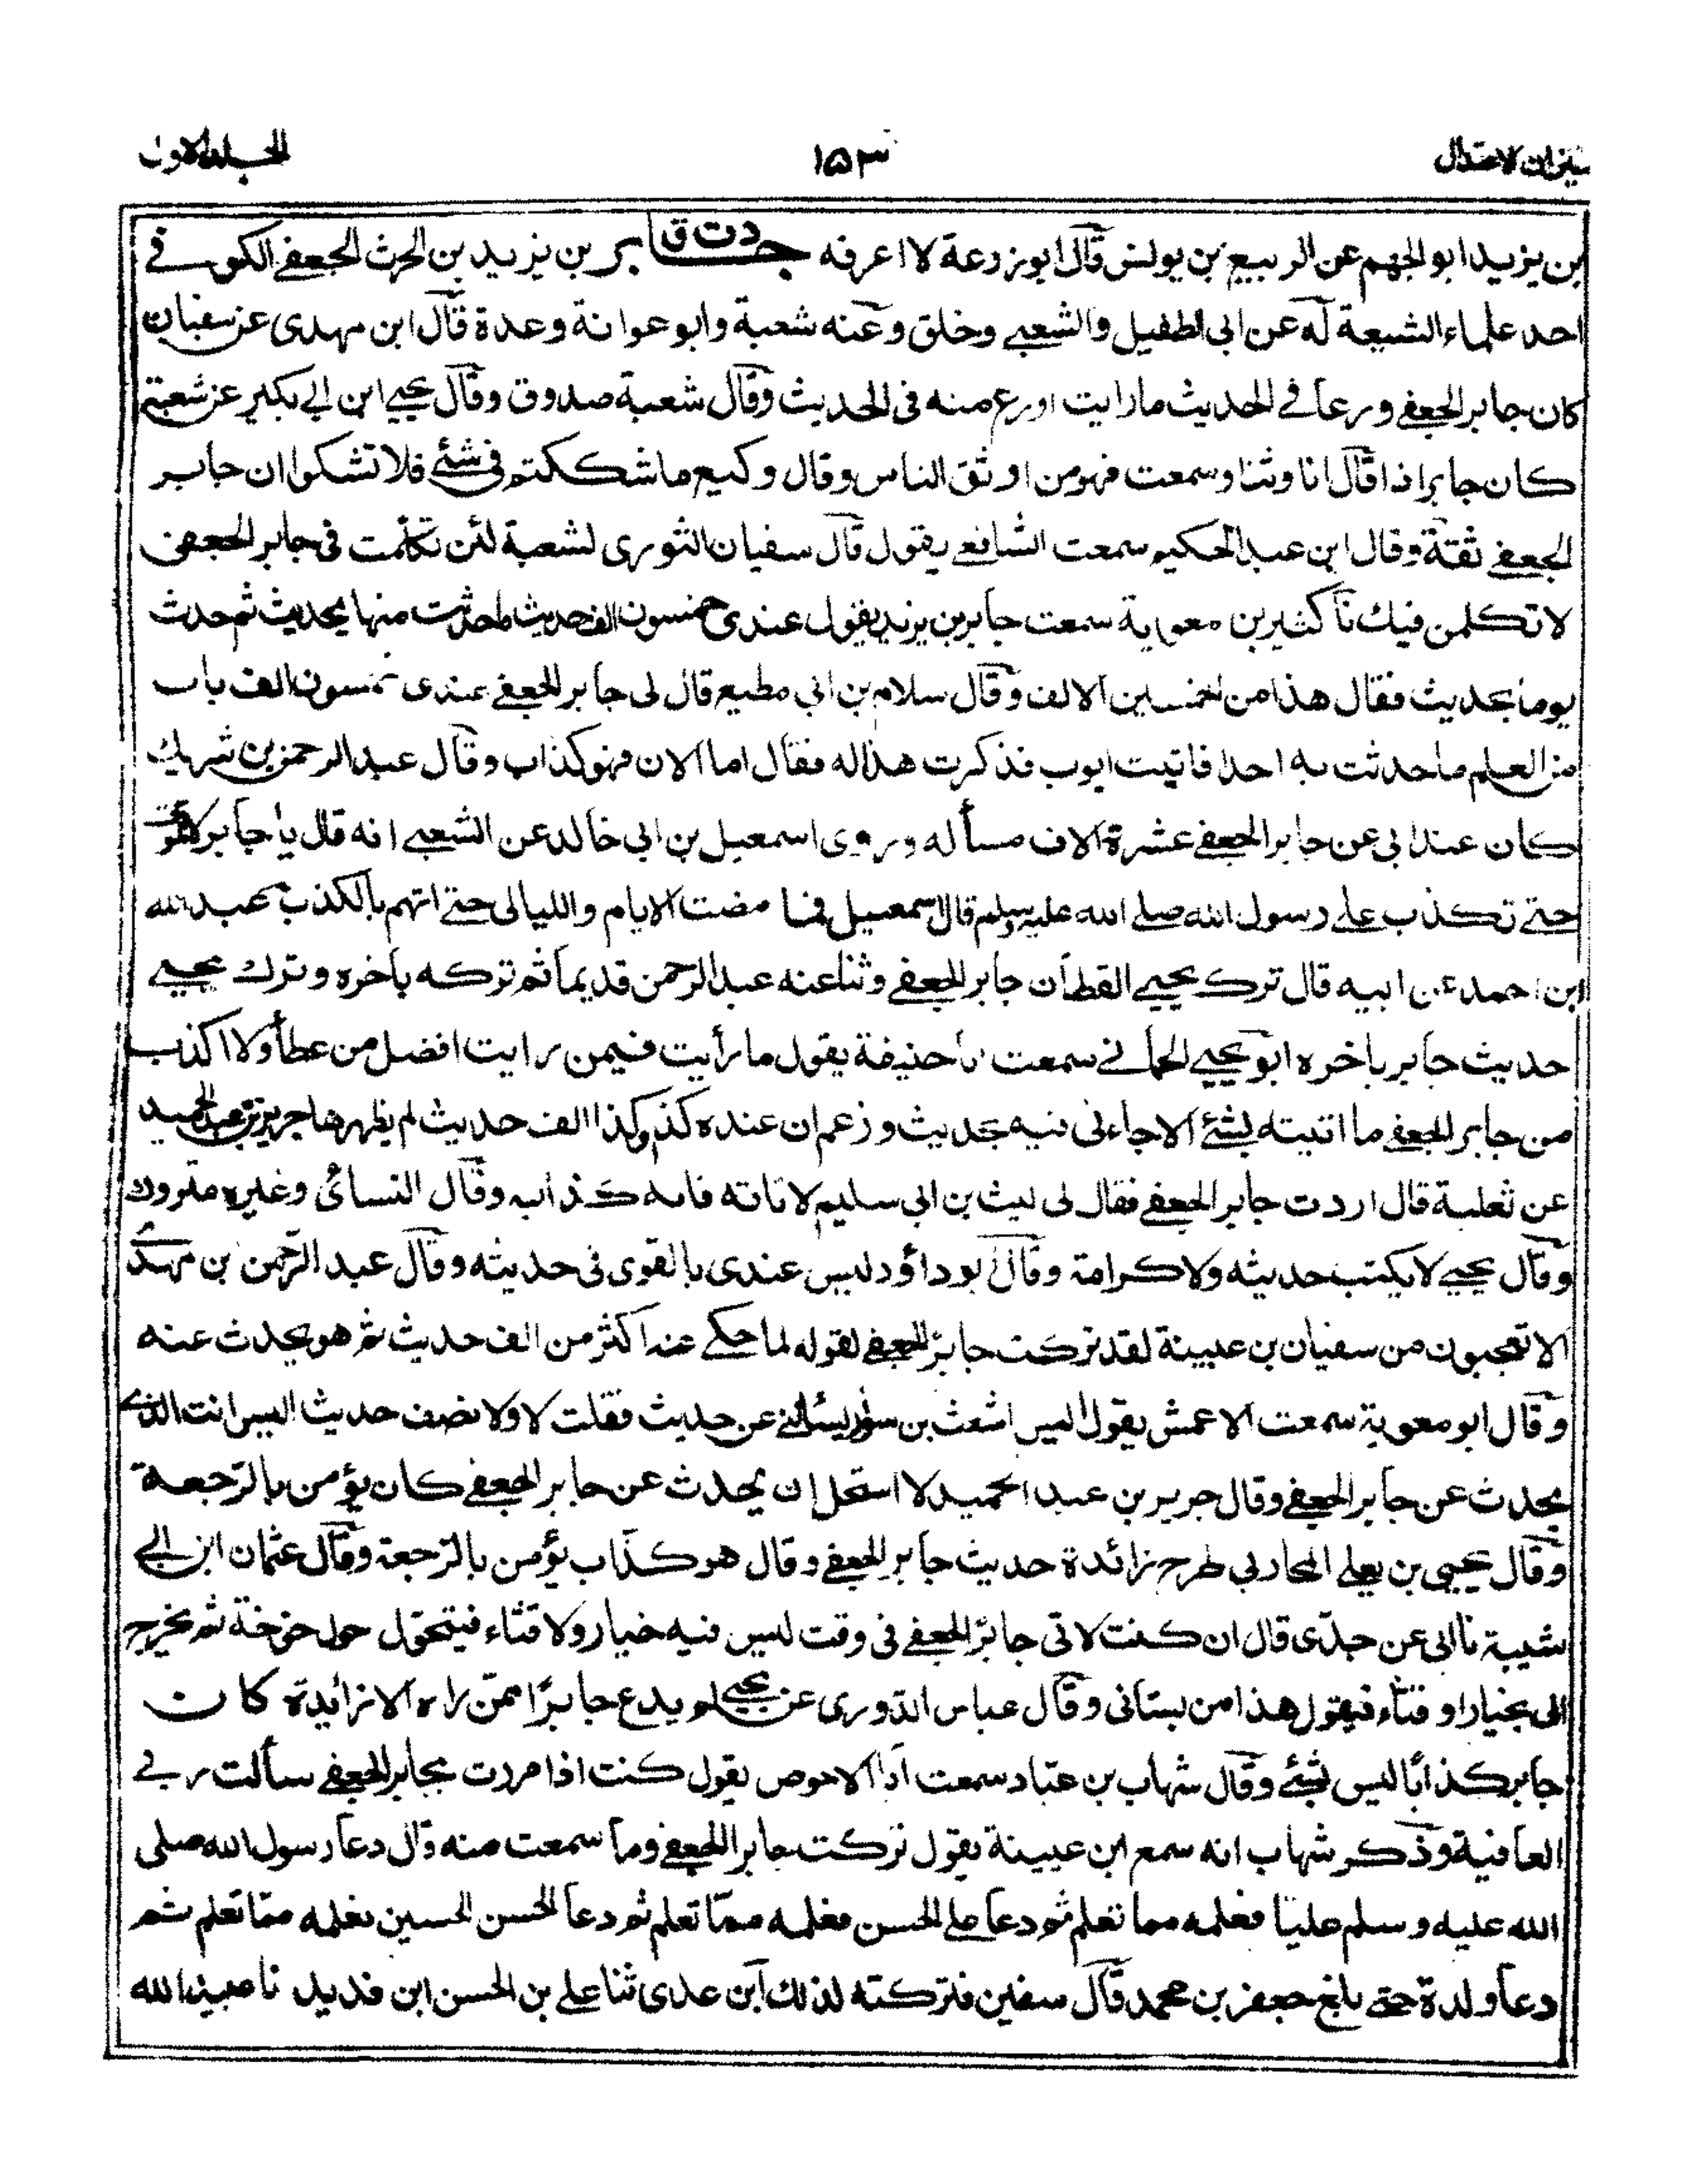 ميزان الاعتدال ١٥٣ الجلد الاول
بن يزيد ابو الجهم عن الربيع بن يونس قال ابو زرعة لا اعرفه جابر د ت ق بن يزيد بن الحرث الجعفے الكوفے
احد علماء الشيعة له عن ابي الطفيل والشعبے وخلق وعنه شعبة وابو عوانة وعدة قال ابن مهدى عن سفيان
كان جابر الجعفے ورعا فے الحديث ما رايت اورع منه فى الحديث وقال شعبة صدوق وقال يحيے ابن ابے بكير عن شعبة
كان جابر اذا قال انا وثنا وسمعت فهو من اوثق الناس وقال وكيع ما شككتم فى شئے فلا تشكوا ان جابر
الجعفے ثقة وقال ابن عبد الحكيم سمعت الشافعے يقول قال سفيان الثورى لشعبة لئن تكلمت فى جابر الجعفى
لا تكلمن فيك نا كثير بن معوية سمعت جابر بن يزيد يقول عندى خمسون الف حديث ما حدثت منها بحديث ثم حدث
يوما بحديث فقال هذا من الخمسين الالف وقال سلام بن ابي مطيع قال لى جابر الجعفے عندى خمسون الف باب
من العلم ما حدثت به احدا فاتيت ايوب فذكرت هذا له فقال اما الان فهو كذاب وقال عبد الرحمن بن شريك
كان عند ابى عن جابر الجعفے عشرة الاف مسأله وروى اسمعيل بن ابي خالد عن الشعبے انه قال يا جابر لا تموت
حتے تكذب علے رسول الله صلے الله عليه وسلم قال اسمعيل فما مضت الايام والليالى حتے اتهم بالكذب عبد الله
ابن احمد عن ابيه قال ترك يحيے القطان جابر الجعفے وثنا عنه عبد الرحمن قديما ثم تركه باخره وترك يحيے
حديث جابر باخره ابو يحيے الحمانے سمعت ابا حنيفة يقول ما رأيت فيمن رايت افضل من عطاء ولا اكذب
من جابر الجعفے ما اتيته بشئے الا جاءنى فيه بحديث وزعم ان عنده كذا وكذا الف حديث لم يظهرها جرير بن عبد الحميد
عن ثعلبة قال اردت جابر الجعفے فقال لى ليث بن ابى سليم لا تاته فانه كذاب وقال النسائى وغيره متروك
وقال يحيے لا يكتب حديثه ولا كرامة وقال ابو داؤد ليس عندى بالقوى فى حديثه وقال عبد الرحمن بن مهدے
الا تعجبون من سفيان بن عيينة لقد تركت جابر الجعفے لقوله لما حكے عنه اكثر من الف حديث ثم هو يحدث عنه
وقال ابو معوية سمعت الاعمش يقول اليس اشعث بن سوار يسألنے عن حديث فقلت لا ولا نصف حديث اليس انت الذے
يحدث عن جابر الجعفے وقال جرير بن عبد الحميد لا استحل ان يحدث عن جابر الجعفے كان يؤمن بالرجعة
وقال يحيى بن يعلے المحاربى طرح زائدة حديث جابر الجعفے وقال هو كذاب يؤمن بالرجعة وقال عثمان ابن ابے
شيبة نا ابى عن جدى قال ان كنت لاتى جابر الجعفے فى وقت ليس فيه خيار ولا قثاء فيتحول حول خوخة ثم يخرج
الى بخيار او قثاء فيقول هذا من بستانى وقال عباس الدورى عن يحيے لم يدع جابرا ممن راه الا زائدة كان
جابر كذابا ليس بشئے وقال شهاب بن عباد سمعت ابا الاحوص يقول كنت اذا مررت بجابر الجعفے سألت ربے
العافية وذكر شهاب انه سمع ابن عيينة يقول تركت جابر الجعفے وما سمعت منه قال دعا رسول الله صلى
الله عليه وسلم عليا فعلمه مما تعلم ثم دعا علے الحسن فعلمه مما تعلم ثم دعا الحسن الحسين فعلمه مما تعلم ثم
دعا ولده حتے بلغ جعفر بن محمد قال سفين فتركته لذلك ابن عدى ثنا علے بن الحسن ابن فديد نا عبيد الله